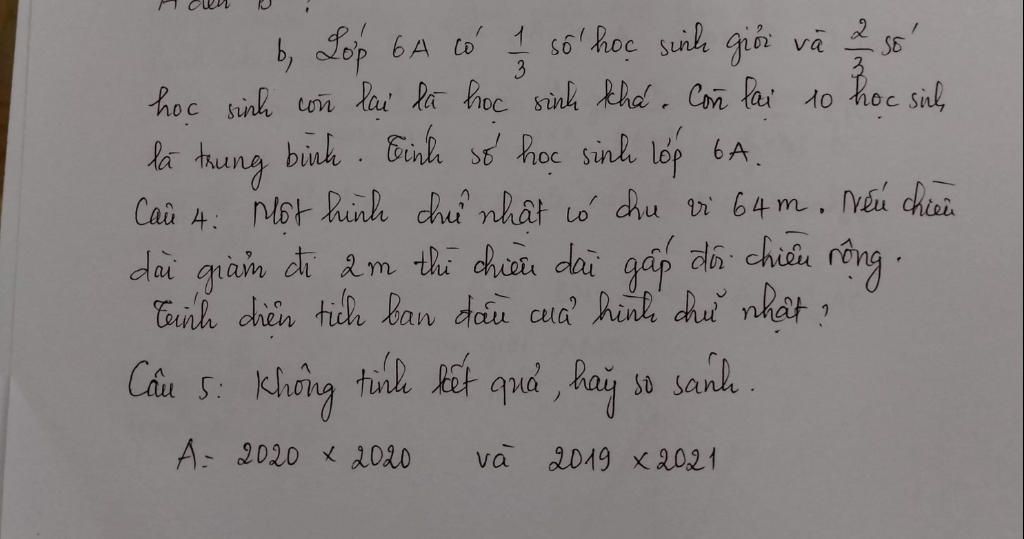 b, Lớp 6A có 1/3 số học sinh giỏi và 2/3 số
học sinh còn lại là học sinh khá. Còn lại 10 học sinh
là trung bình. Tính số học sinh lớp 6A.
Câu 4: Một hình chữ nhật có chu vi 64m. Nếu chiều
dài giảm đi 2m thì chiều dài gấp đôi chiều rộng.
Tính diện tích ban đầu của hình chữ nhật?
Câu 5: Không tính kết quả, hãy so sánh.
A = 2020 x 2020 và 2019 x 2021